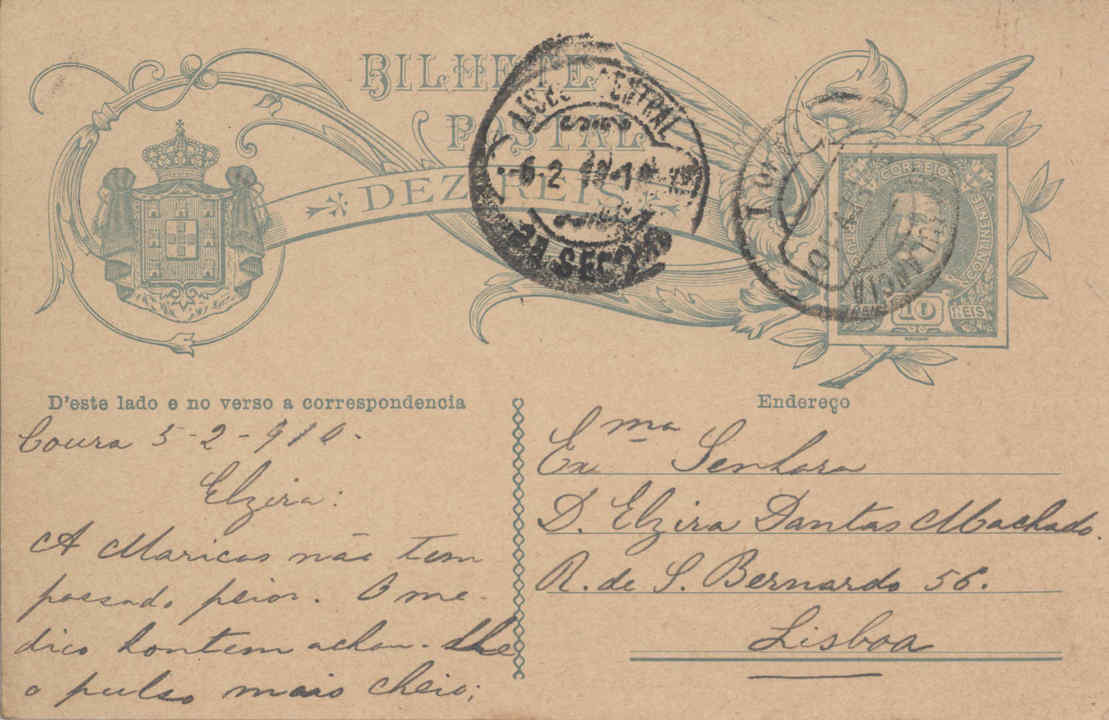 BILHETE
POSTAL
DEZ REIS
LISBOA CENTRAL
6-2 10-1
2A SECÇÃO
CORREIOS
CONTINENTE
10 REIS
D'este lado e no verso a correspondencia
Endereço
Coura 5-2-910.
Elzira:
A Maricas não tem
passado peior. O me-
dico hontem achou-lhe
o pulso mais cheio;
Exma Senhora
D. Elzira Dantas Machado.
R. de S. Bernardo 56.
Lisboa